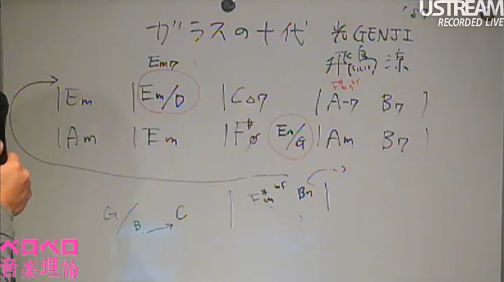 USTREAM
RECORDED LIVE
ガラスの十代 光GENJI
飛鳥涼
Em7
F#m7-5
|Em |Em/D |C△7 |A-7 B7 |
|Am |Em |F#ø Em/G |Am B7 |
G/B → C | F#m-5 B7 |
ペロペロ
音楽理論